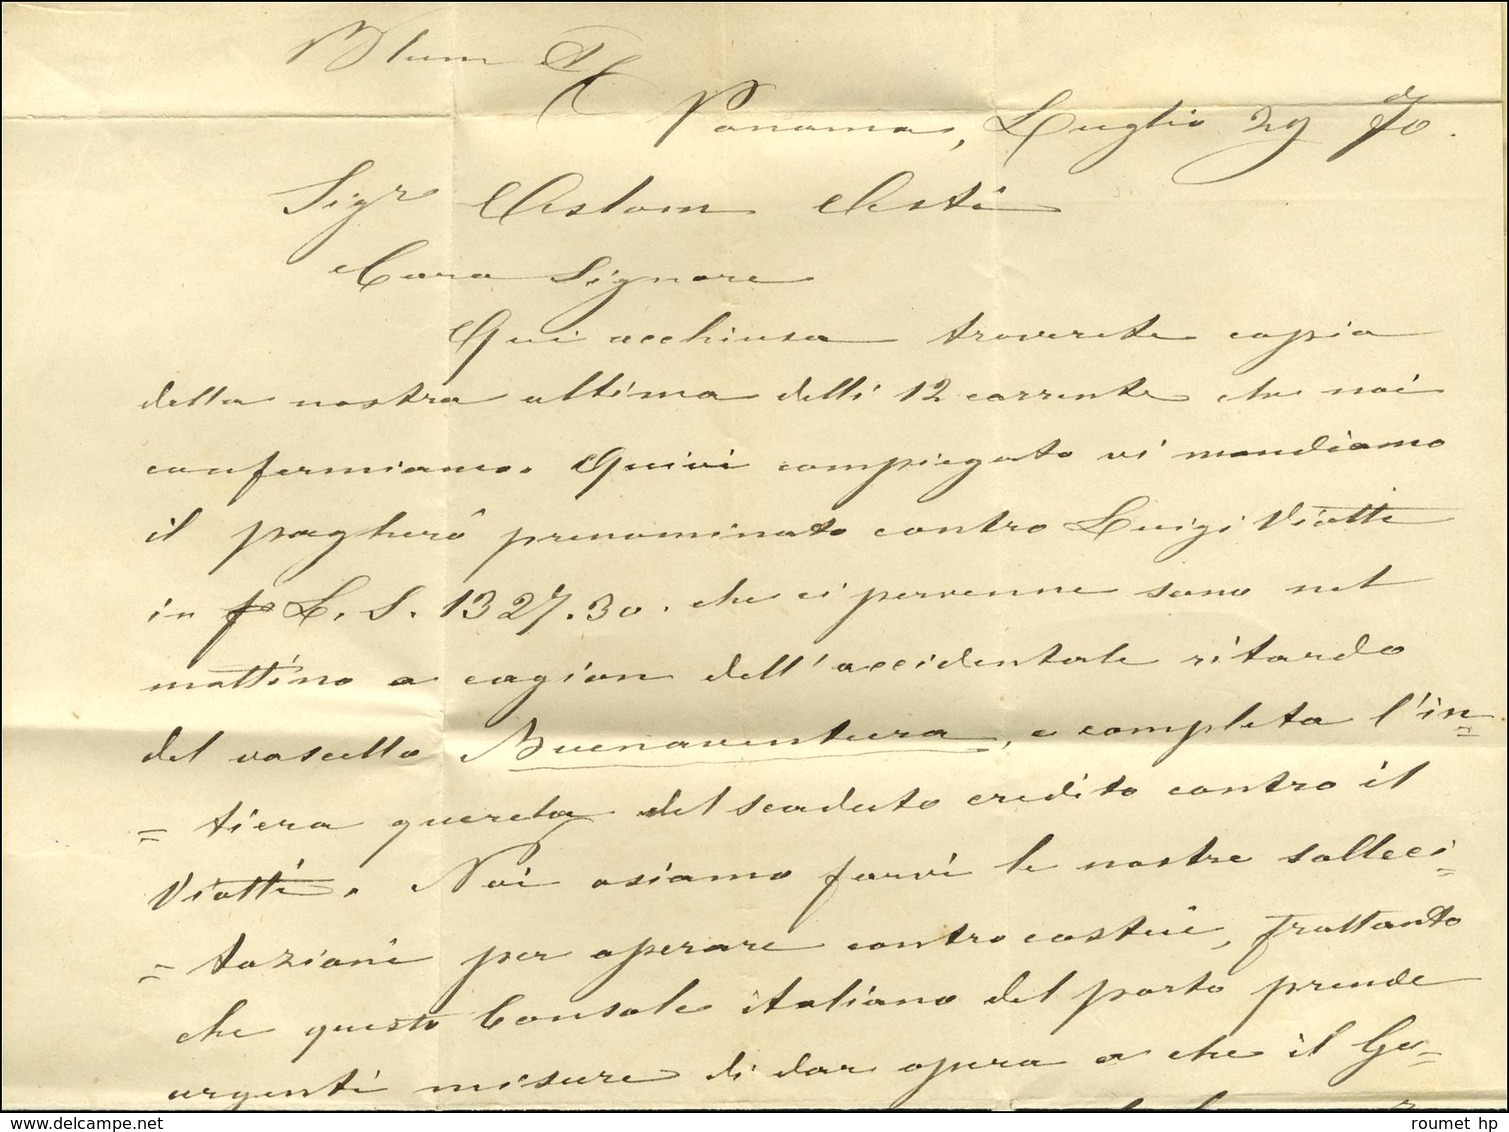 Panama, Luglio 29 70.
Sigr Aslom Asti
Caro Signore
Qui acchiusa troverete copia
della nostra ultima delli 12 corrente che noi
confermiamo. Quivi compiegato vi mandiamo
il pagherô prenominato contro Luigi Viotti
in L. S. 1327.30. che ci pervenne sono nel
mattino a cagion dell'accidentale ritardo
del vascello Buenaventura, e completa l'in=
=tiera querela del scaduto credito contro il
Viotti. Noi osiamo farvi le nostre solleci=
=tazioni per operare contro costui, frattanto
che questo Console italiano del porto prende
urgenti misure di dar opera a che il Go=
roumet hp